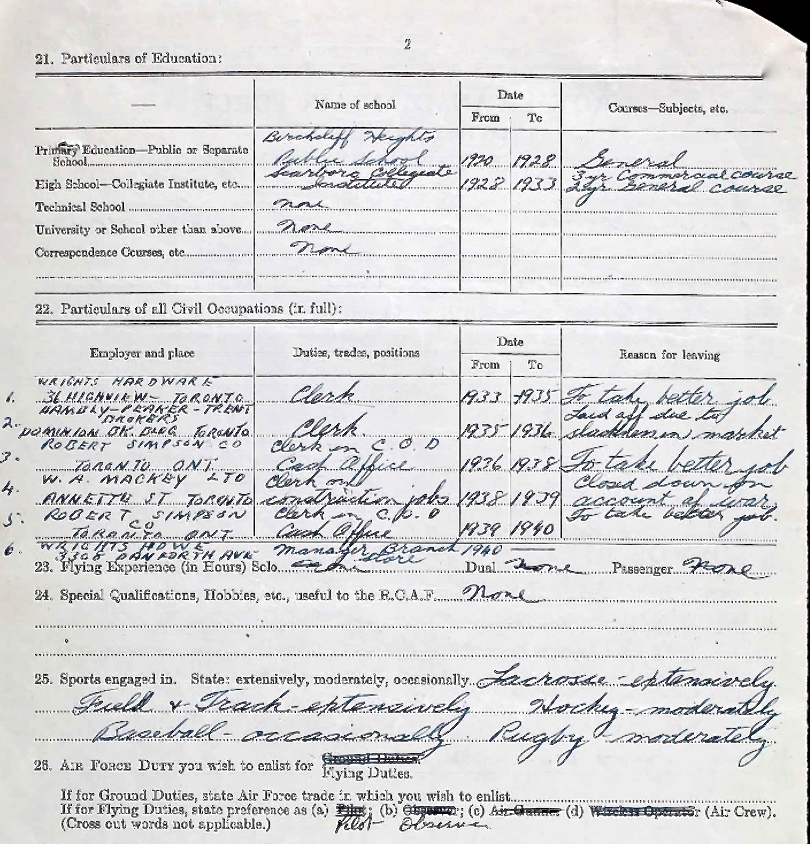 2
21. Particulars of Education:
Name of school
Date
Courses—Subjects, etc.
From To
Birchcliff Heights
Primary Education—Public or Separate School Public School 1920 1928 General
Scarboro Collegiate 3 yr Commercial course
High School—Collegiate Institute, etc. Institute 1928 1933 2 yr General course
Technical School none
University or School other than above None
Correspondence Courses, etc. None
22. Particulars of all Civil Occupations (in full):
Employer and place Duties, trades, positions Date Reason for leaving
From To
WRIGHTS HARDWARE
1. 36 HIGHVIEW - TORONTO Clerk 1933 1935 To take better job
HAMBLY-PEAKER-TRENT Laid off due to
2. BROKERS
DOMINION BK. BLDG TORONTO Clerk 1935 1936 slackness in market
ROBERT SIMPSON CO Clerk in C.O.D
3. TORONTO ONT. Cash Office 1936 1938 To take better job
W. A. MACKEY LTD Clerk on Closed down on
4. ANNETTE ST TORONTO construction jobs 1938 1939 account of war
5. ROBERT SIMPSON Clerk in C.O.D To take better job.
CO
TORONTO ONT Cash Office 1939 1940
6. WRIGHTS HDWE Manager Branch 1940 —
3306 DANFORTH AVE store
23. Flying Experience (in Hours) Solo none Dual None Passenger None
24. Special Qualifications, Hobbies, etc., useful to the R.C.A.F. None
25. Sports engaged in. State: extensively, moderately, occasionally Lacrosse - extensively
Field & Track - extensively Hockey - moderately
Baseball - occasionally Rugby - moderately
26. AIR FORCE DUTY you wish to enlist for Ground Duties.
Flying Duties.
If for Ground Duties, state Air Force trade in which you wish to enlist
If for Flying Duties, state preference as (a) Pilot; (b) Observer; (c) Air Gunner (d) Wireless Operator (Air Crew).
(Cross out words not applicable.) Pilot Observer